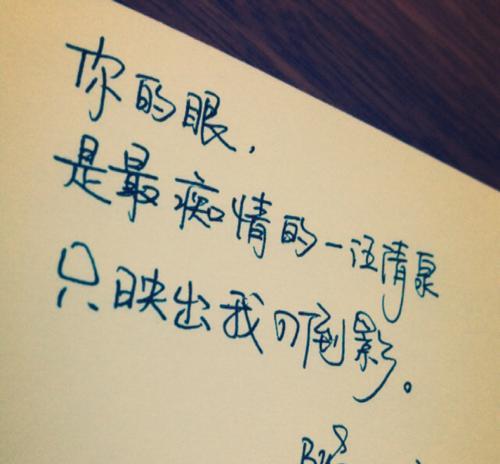 你的眼,
是最痴情的一汪清泉
只映出我的倒影。